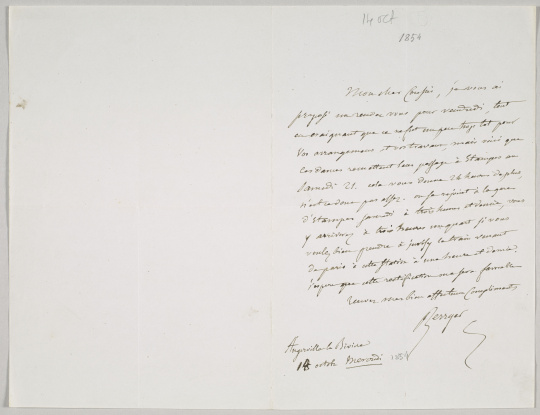 14 oct
1854
Mon cher Cousin, je vous ai
proposé un rendez vous pour vendredi, tout
en craignant que ce ne fut un peu trop tôt pour
vos arrangemens et vos travaux, mais voici que
ces dames remettent leur passage à Etampes au
samedi 21. cela vous donne 24 heures de plus,
n'est-ce donc pas assez. on se rejoint à la gare
d'Etampes samedi à trois heures et demie, vous
y arriverez à trois heures un quart si vous
voulez bien prendre à le train venant
de paris à cette station à une heure et demie.
j'espère que cette rectification me sera favorable
recevez mes bien affectueux compliments
Berryer
Angerville la Rivière
18 octobre Mercredi 1854